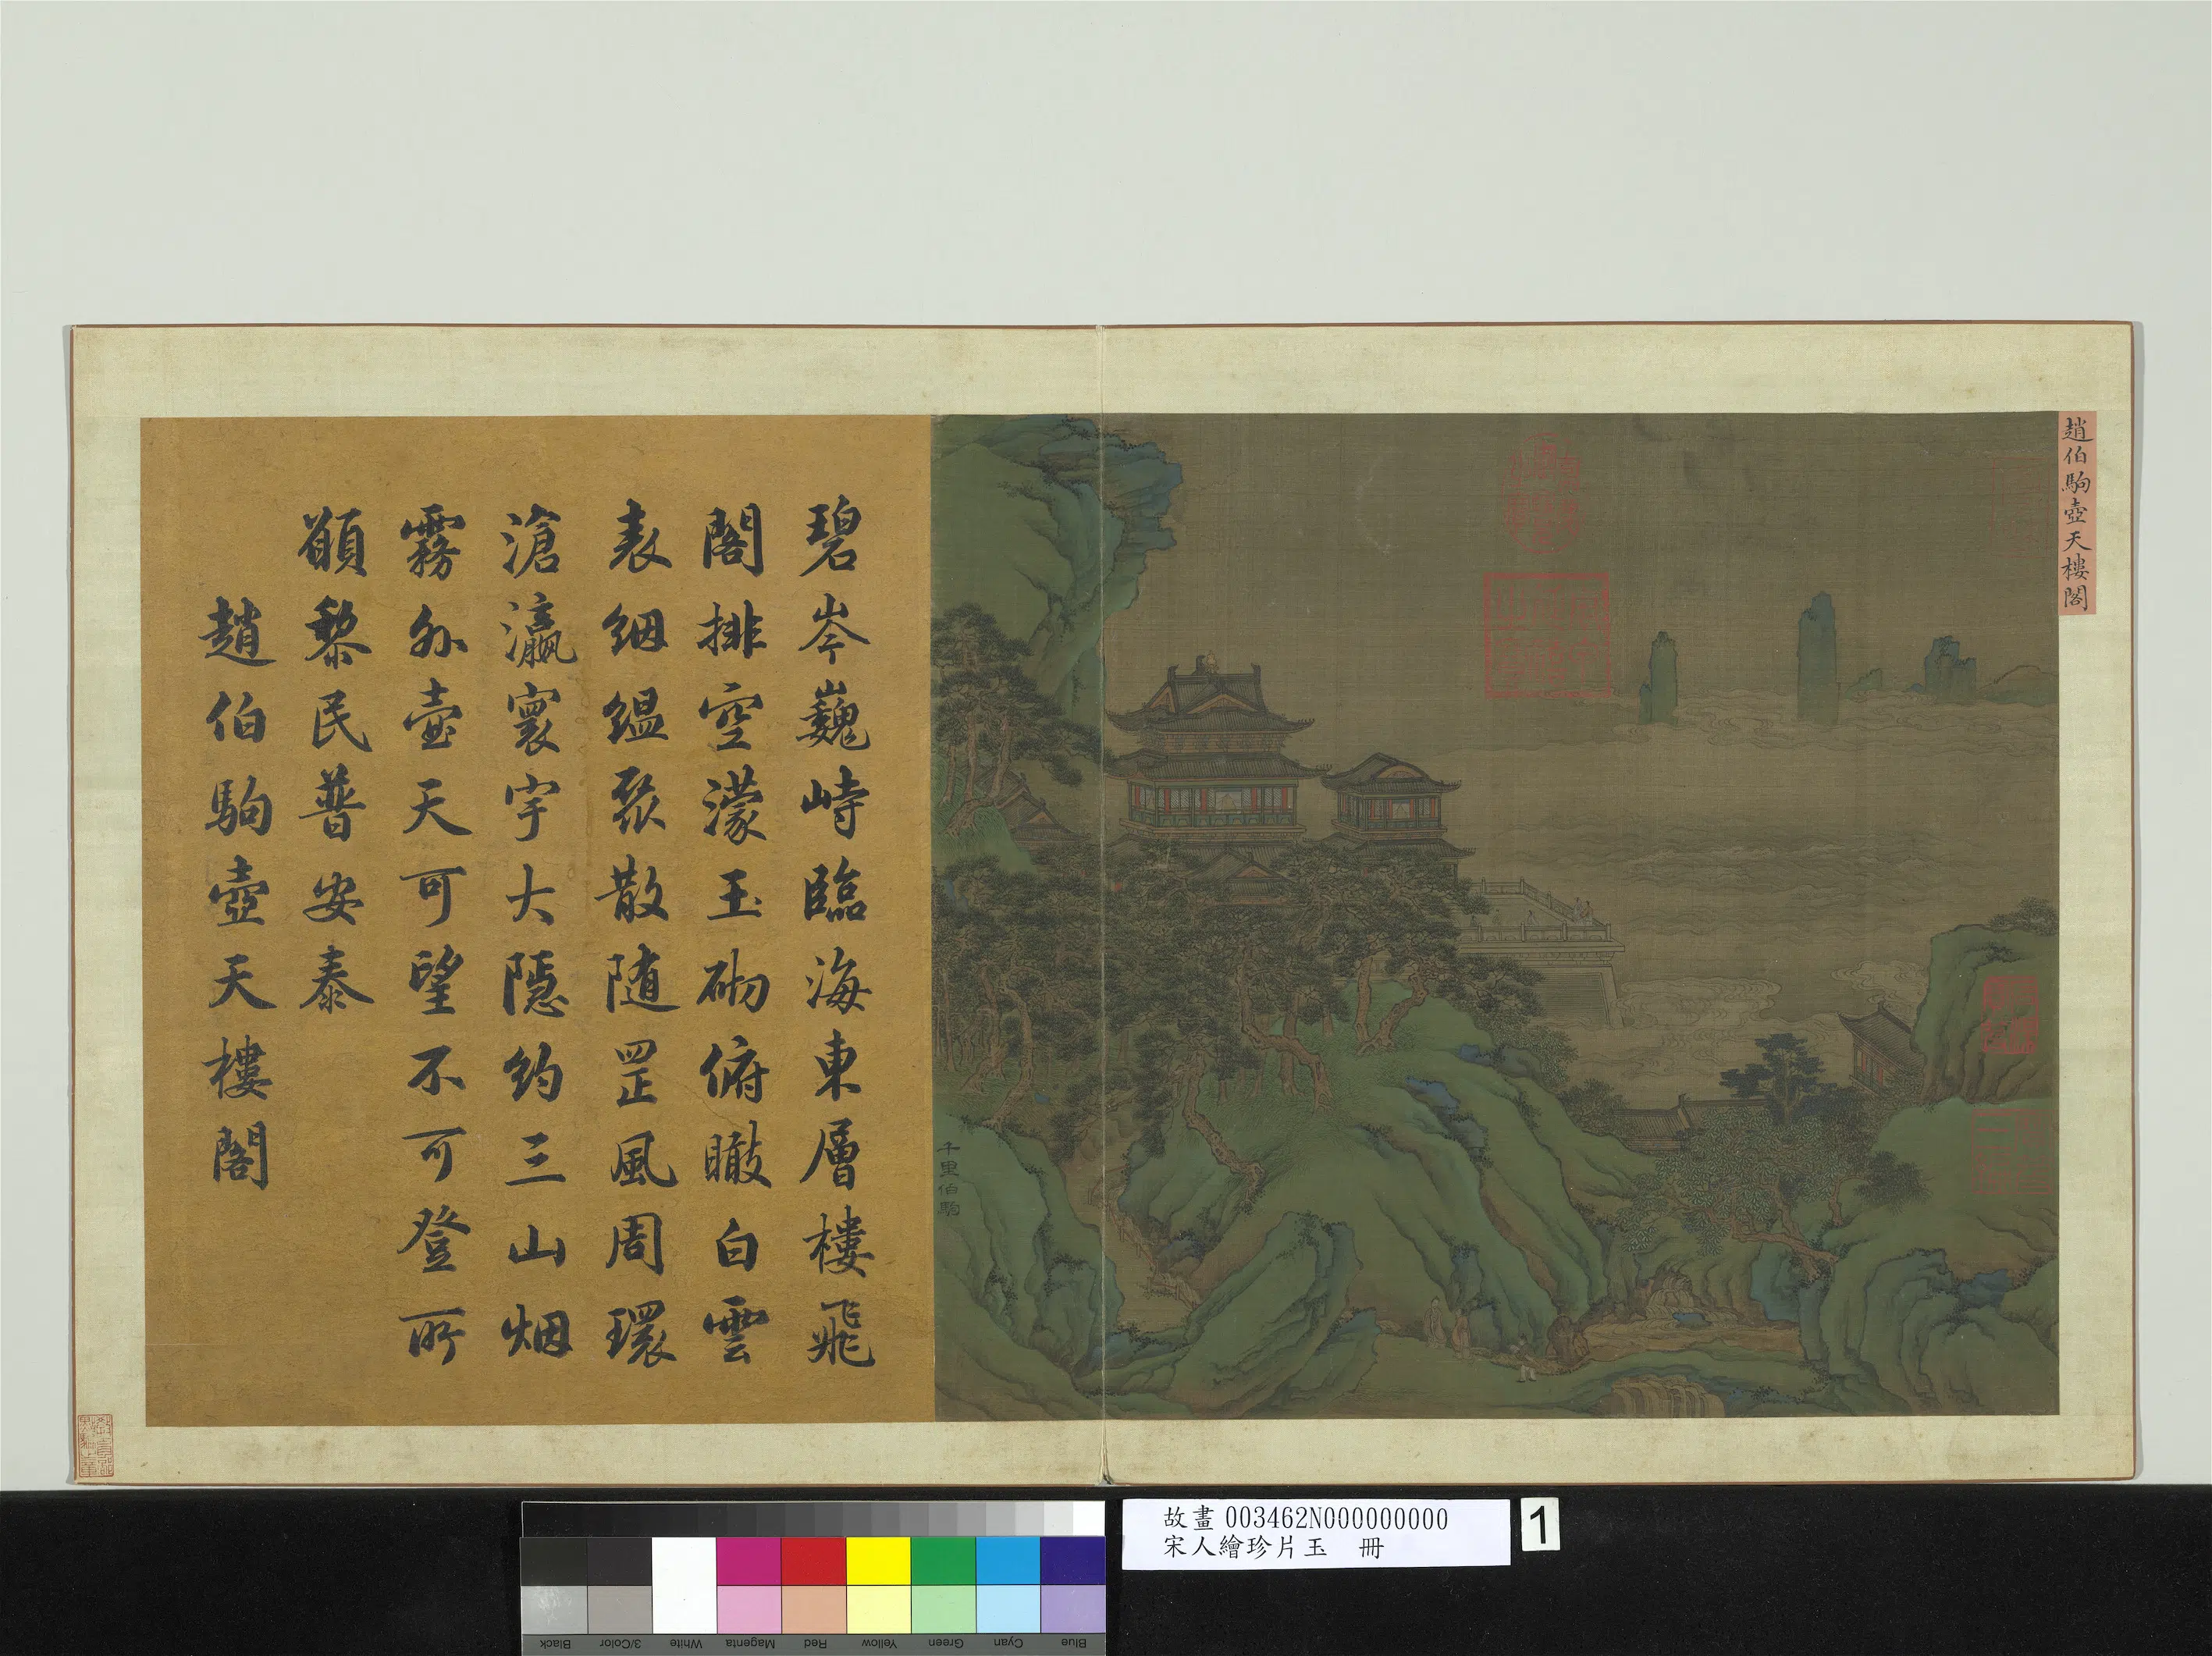 趙伯駒壺天樓閣
千里伯駒
碧岑巍峙臨海東層樓飛
閣排空濛玉砌俯瞰白雲
表絪縕聚散随罡風周環
滄瀛寰宇大隱約三山烟
霧外壺天可望不可登所
願黎民普安泰
趙伯駒壺天樓閣
故畫 003462N000000000
宋人繪珍片玉 冊
1
Black 3/Color White Magenta Red Yellow Green Cyan Blue